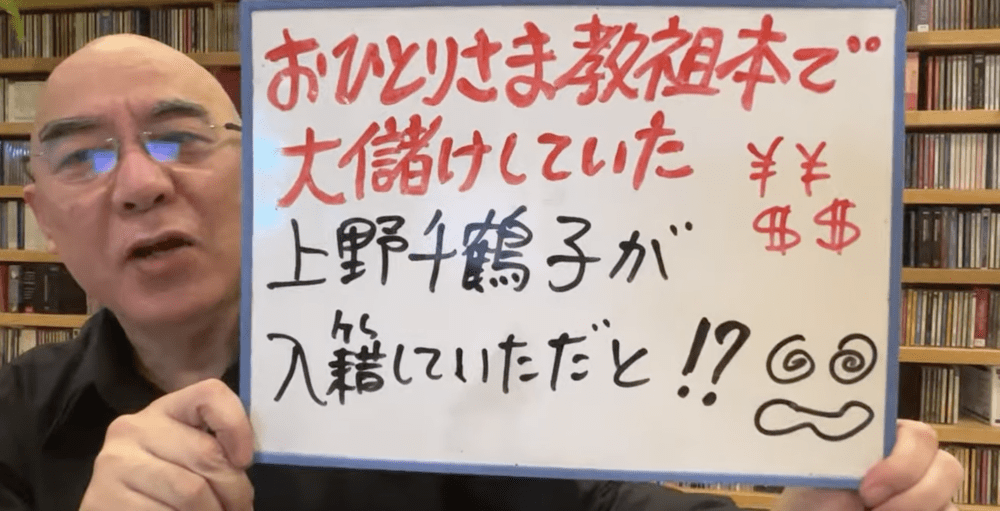 おひとりさま教祖本で
大儲けしていた
¥¥
$$
上野千鶴子が
入籍していただと!?